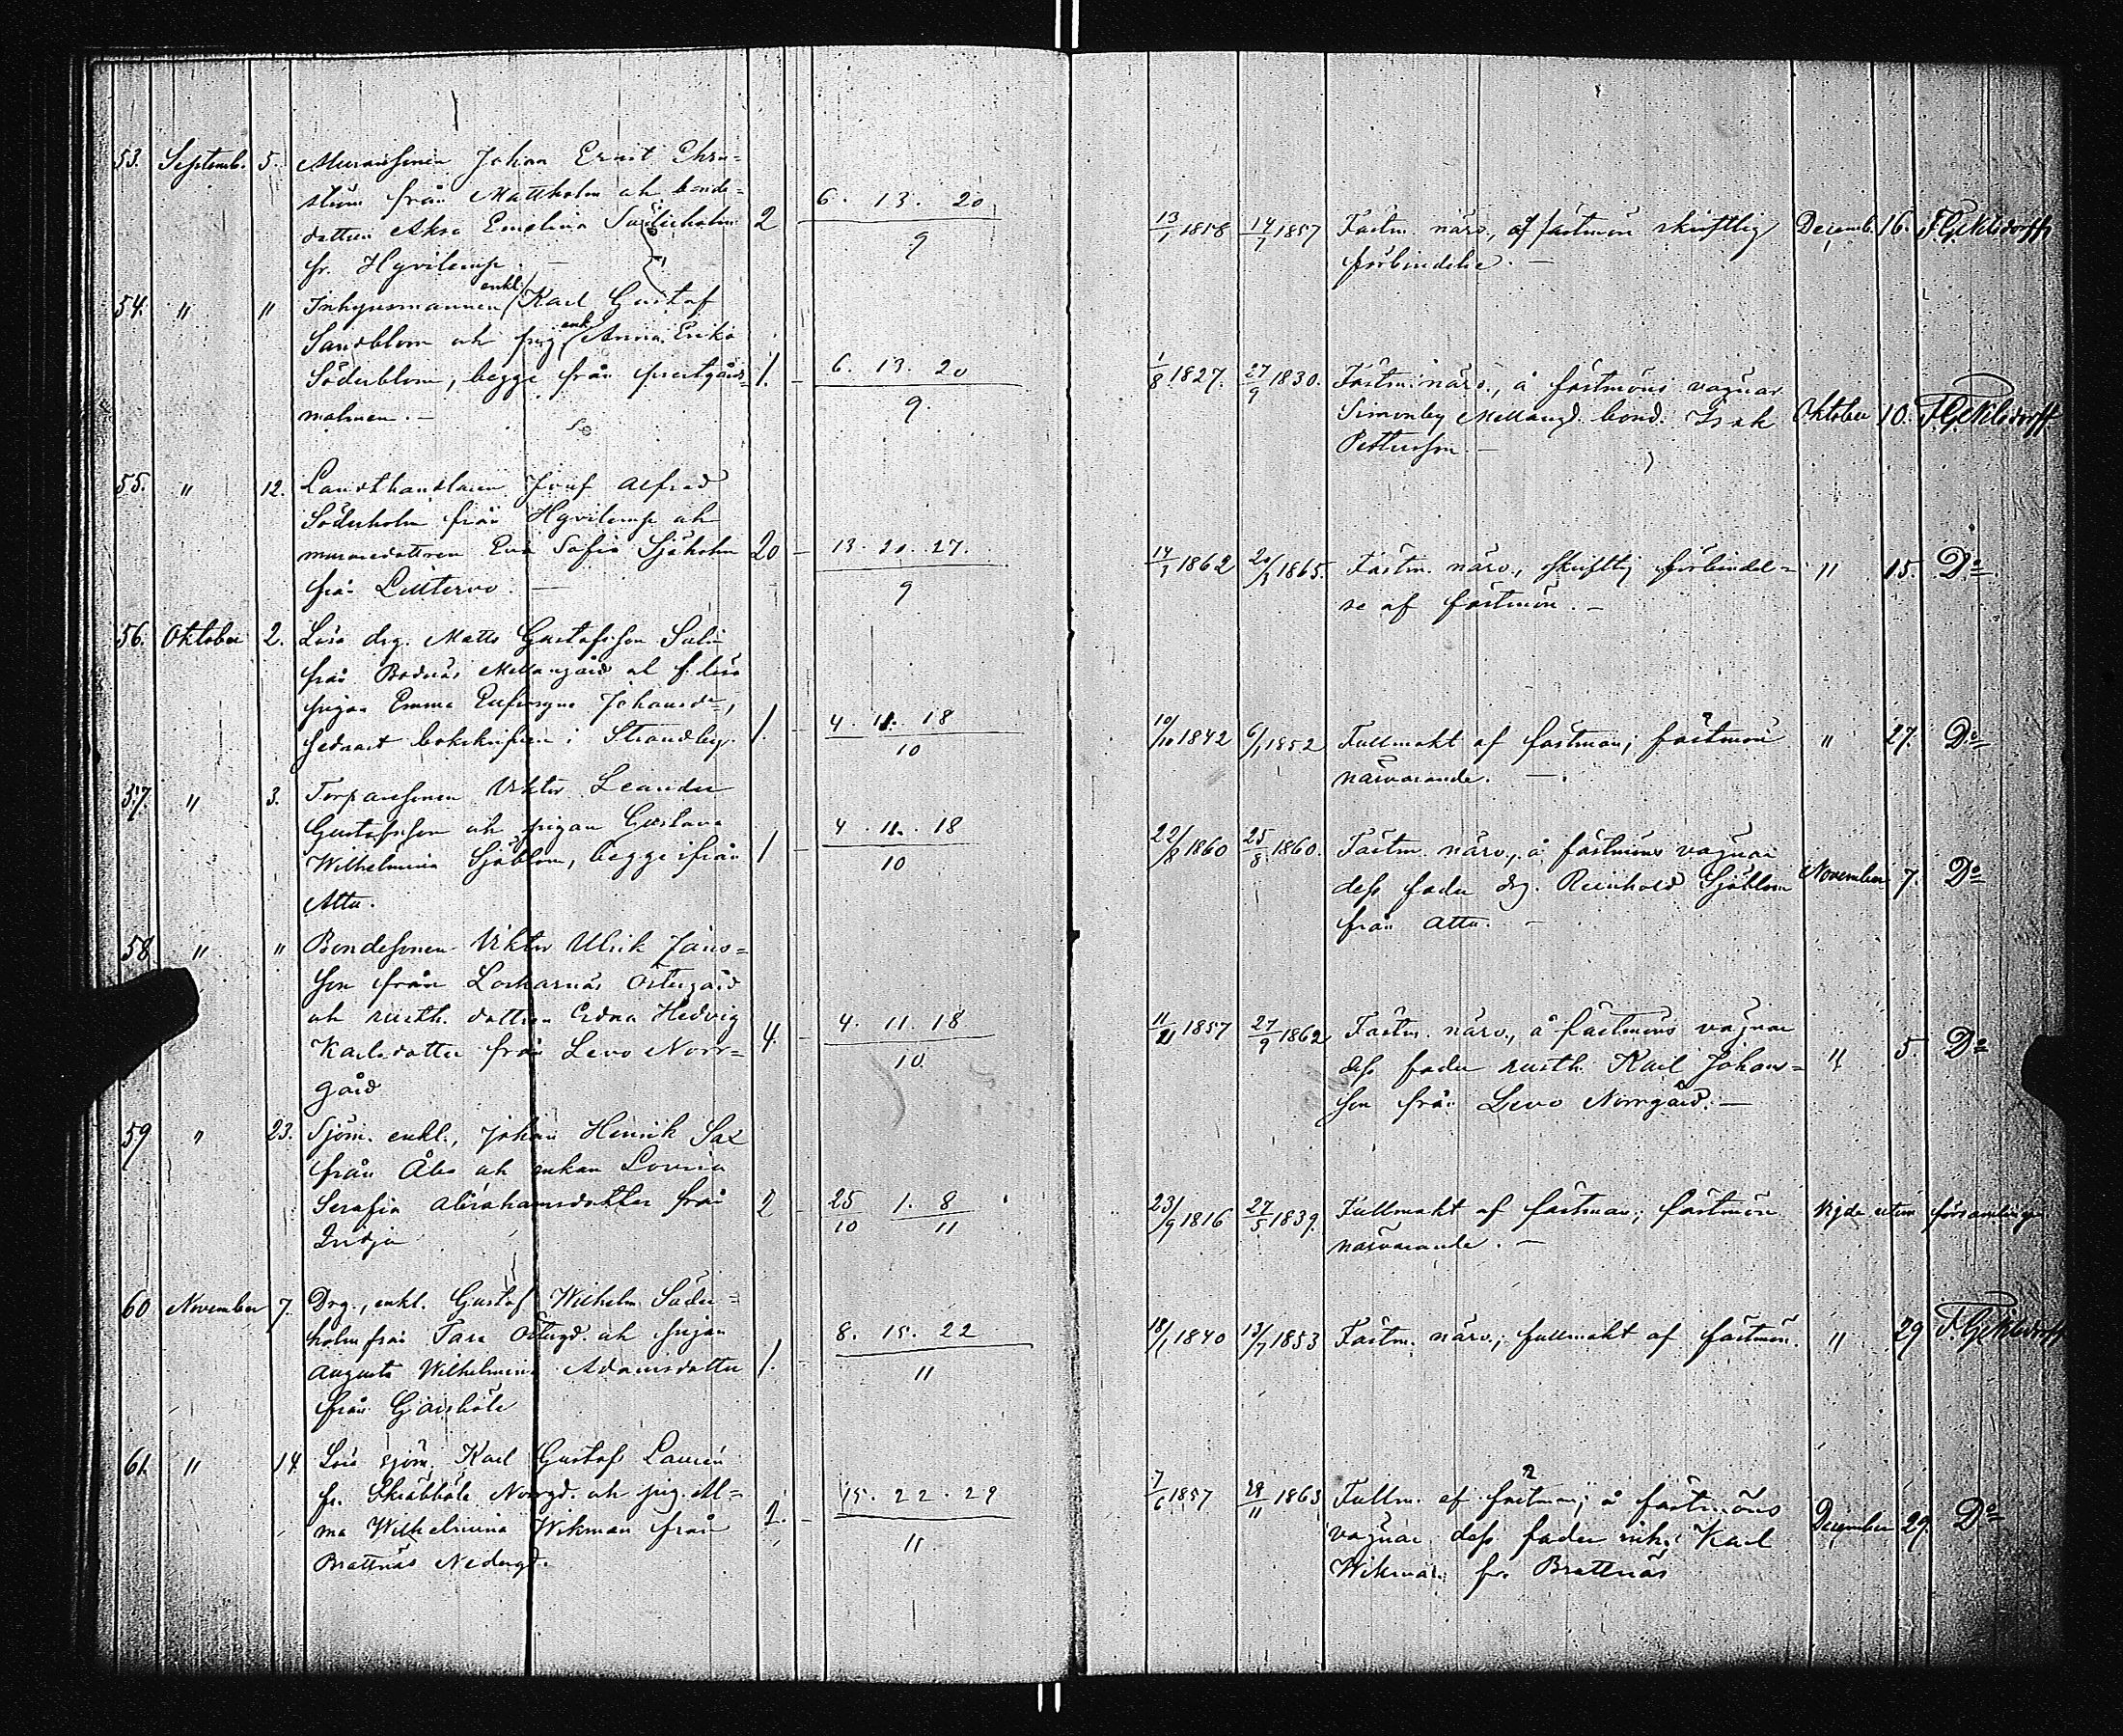 53. Septemb. 5. Murarsonen Johan Ernst Chri-
ström från Mattholm och bonde-
dottren Aksa Emelina Söderholm 2 6. 13. 20
9
fr. Hyvilemp. —
13/1 1858 14/7 1857 Fästm. närv., af fästmön skriftlig Decemb. 16. F.G. Eklsdorff
förbindelse. —
54. " " Inhysmannen enkl. Karl Gustaf
Sandblom och pig. enk. Anna Erika
Söderblom, begge från prestgårds- 1. 6. 13. 20
9.
malmen. —
1/8 1827. 27/9 1830. Fästm. närv., å fästmöns vägnar
Simonby Mellangd. bond. Isak Oktober 10. F.G. Eklsdorff
Pettersson. —
55. " 12. Landthandlaren Josef Alfred
Söderholm från Hyvilemp och
muraredottren Eva Sofia Sjöholm 20 13. 20. 27.
9
från Littervo. —
14/1 1862 20/3 1865. Fästm. närv., skriftlig förbindel- " 15. D:o
se af fästmön. —
56. Oktober 2. Lösa drg. Matts Gustafsson Salin
från Bodnäs Mellangård och f. lösa
pigan Emma Eufrosyne Johansd:r,
hednast bokskrifven i Strandby. 1 4. 11. 18
10
10/10 1842 6/1 1852 Fullmakt af fästman; fästmön " 27. D:o
närvarande. —
57. " 3. Torparesonen Viktor Leander
Gustafsson och pigan Gustava
Wilhelmina Sjöblom, begge ifrån 1 4. 11. 18
10
Attu.
22/8 1860 25/8 1860. Fästm. närv., å fästmöns vägnar
dess fader drg. Reinhold Sjöblom November 7. D:o
från Attu. —
58 " " Bondesonen Viktor Ulrik Jans-
son från Lockarnäs Östergård
och rusth. dottren Edna Hedvig
Karlsdotter från Levo Norr- 4. 4. 11. 18
10.
gård
11/11 1857 27/9 1862 Fästm. närv., å fästmöns vägnar
dess fader rusth. Karl Johans- " 5. D:o
son från Levo Norrgård. —
59 " 23. Sjöm. enkl., Johan Henrik Sax
från Åbo och enkan Lovisa
Serafia Abrahamsdotter från 2 25/10 1. 8
11
23/9 1816 27/5 1839. Fullmakt af fästman; fästmön Vigde utom församlingen
närvarande. —
60 November 7. Drg., enkl. Gustaf Wilhelm Söder-
holm från Tara Östergd. och pigan
Augusta Wilhelmina Adamsdotter 1. 8. 15. 22
11
från Garsböle
18/1 1840 13/7 1853 Fästm. närv.; fullmakt af fästmön. " 29 F.G. Eklsdorff
61. " 14. Lösa sjöm. Karl Gustaf Laurén
fr. Skräbböle Norrgd. och pig. Al-
ma Wilhelmina Wikman från 2. 15. 22. 29
11.
Brattnäs Nedergd.
7/6 1857 28/11 1863 Fullm. af fästman; å fästmöns
vägnar dess fader inh. Karl December 29. D:o
Wikman fr. Brattnäs